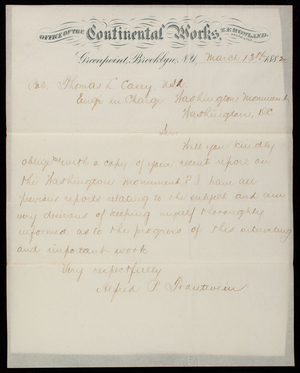 OFFICE OF THE Continental Works, T.F. ROWLAND.
Greenpoint, Brooklyn, N.Y. March 13th 1882
Col. Thomas L. Casey USA
Engr in Charge Washington Monument
Washington, DC
Sir
Will you kindly
oblige me with a copy of your recent report on
the Washington Monument? I have all
previous reports relating to the subject and am
very desirous of keeping myself thoroughly
informed as to the progress of this interesting
and important work
Very respectfully
Alfred P. Trautwein